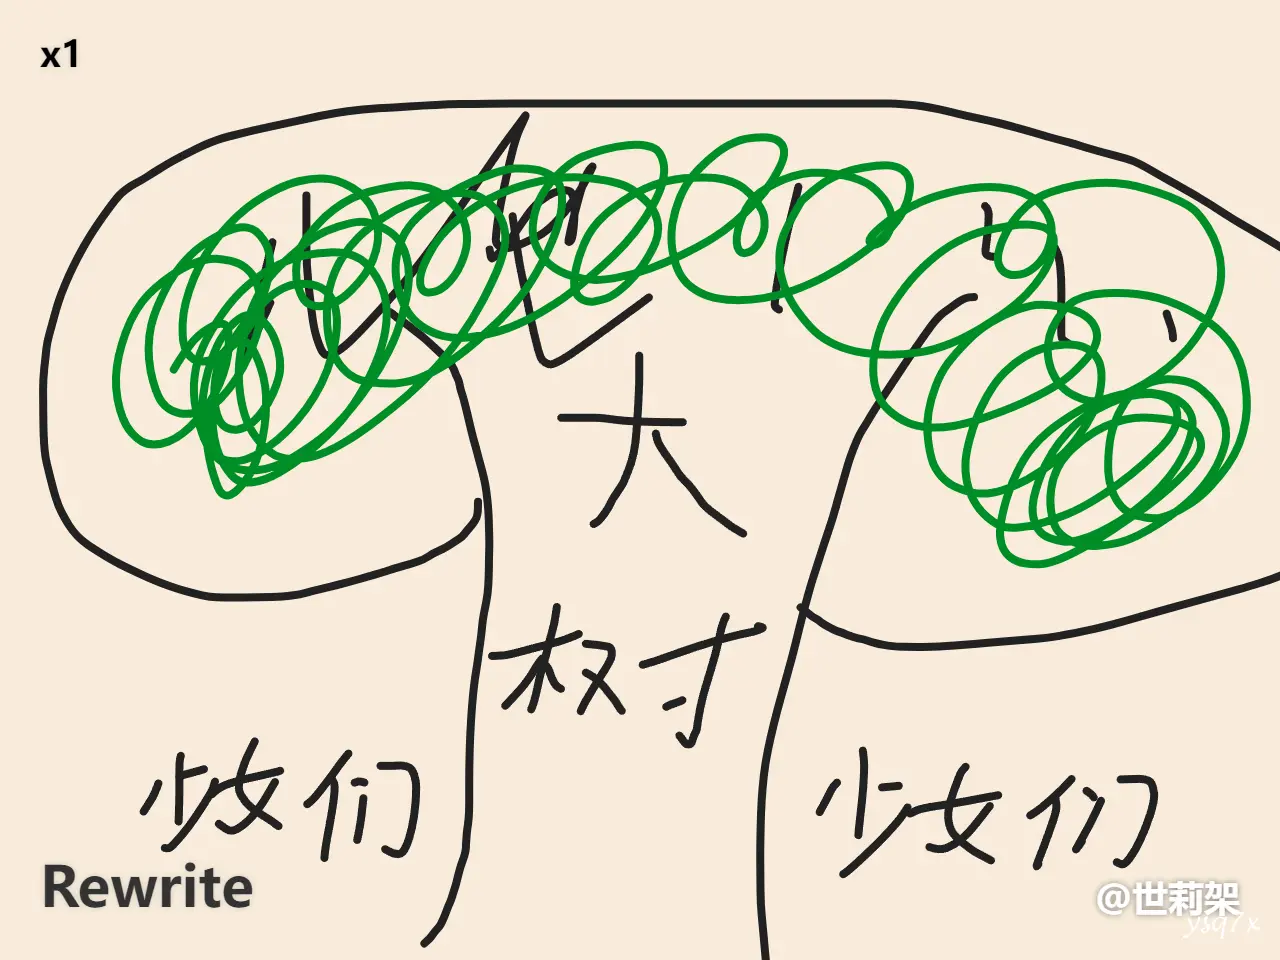 x1
大
树
少女们 少女们
Rewrite
@世莉架
ysq7x